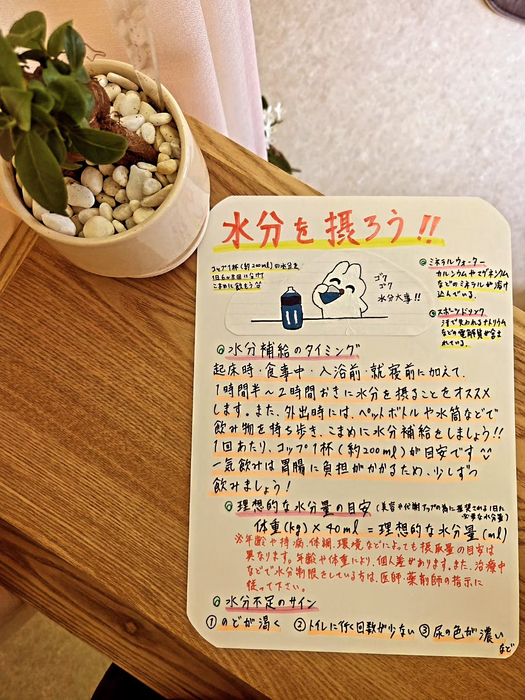 水分を摂ろう!!
コップ1杯(約200ml)の水分を
1日6〜8回に分けて
こまめに飲もう
ゴク
ゴク
水分大事!!
ミネラルウォーター
カルシウムやマグネシウム
などのミネラルが溶け
込んでいる。
スポーツドリンク
汗で失われるナトリウム
などの電解質が含ま
れている。
水分補給のタイミング
起床時・食事中・入浴前・就寝前に加えて、
1時間半〜2時間おきに水分を摂ることをオススメ
します。また、外出時には、ペットボトルや水筒などで
飲み物を持ち歩き、こまめに水分補給をしましょう!!
1回あたり、コップ1杯(約200ml)が目安です
一気飲みは胃腸に負担がかかるため、少しずつ
飲みましょう!
理想的な水分量の目安 (美容や代謝アップの為に推奨される1日に
必要な水分量)
体重(kg)×40ml=理想的な水分量(ml)
※年齢や持病、体調、環境などによっても摂取量の目安は
異なります。年齢や体重により、個人差があります。また、治療中
などで水分制限をしている方は、医師・薬剤師の指示に
従って下さい。
水分不足のサイン
①のどが渇く ②トイレに行く回数が少ない ③尿の色が濃い
など